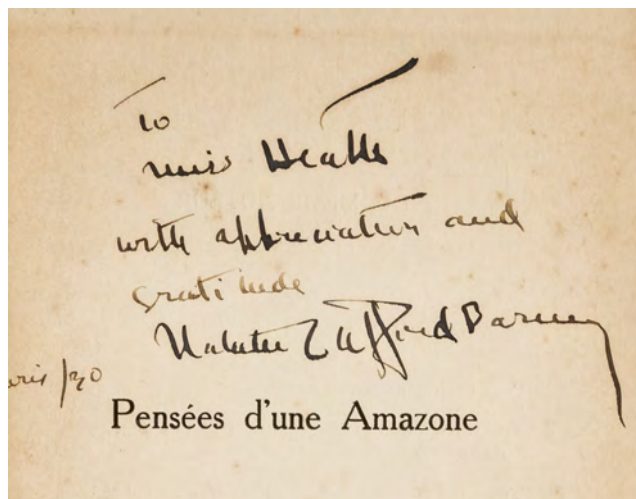 To
Miss Heath
with appreciation and
gratitude
Natalie Clifford Barney
Paris / 30
Pensées d'une Amazone